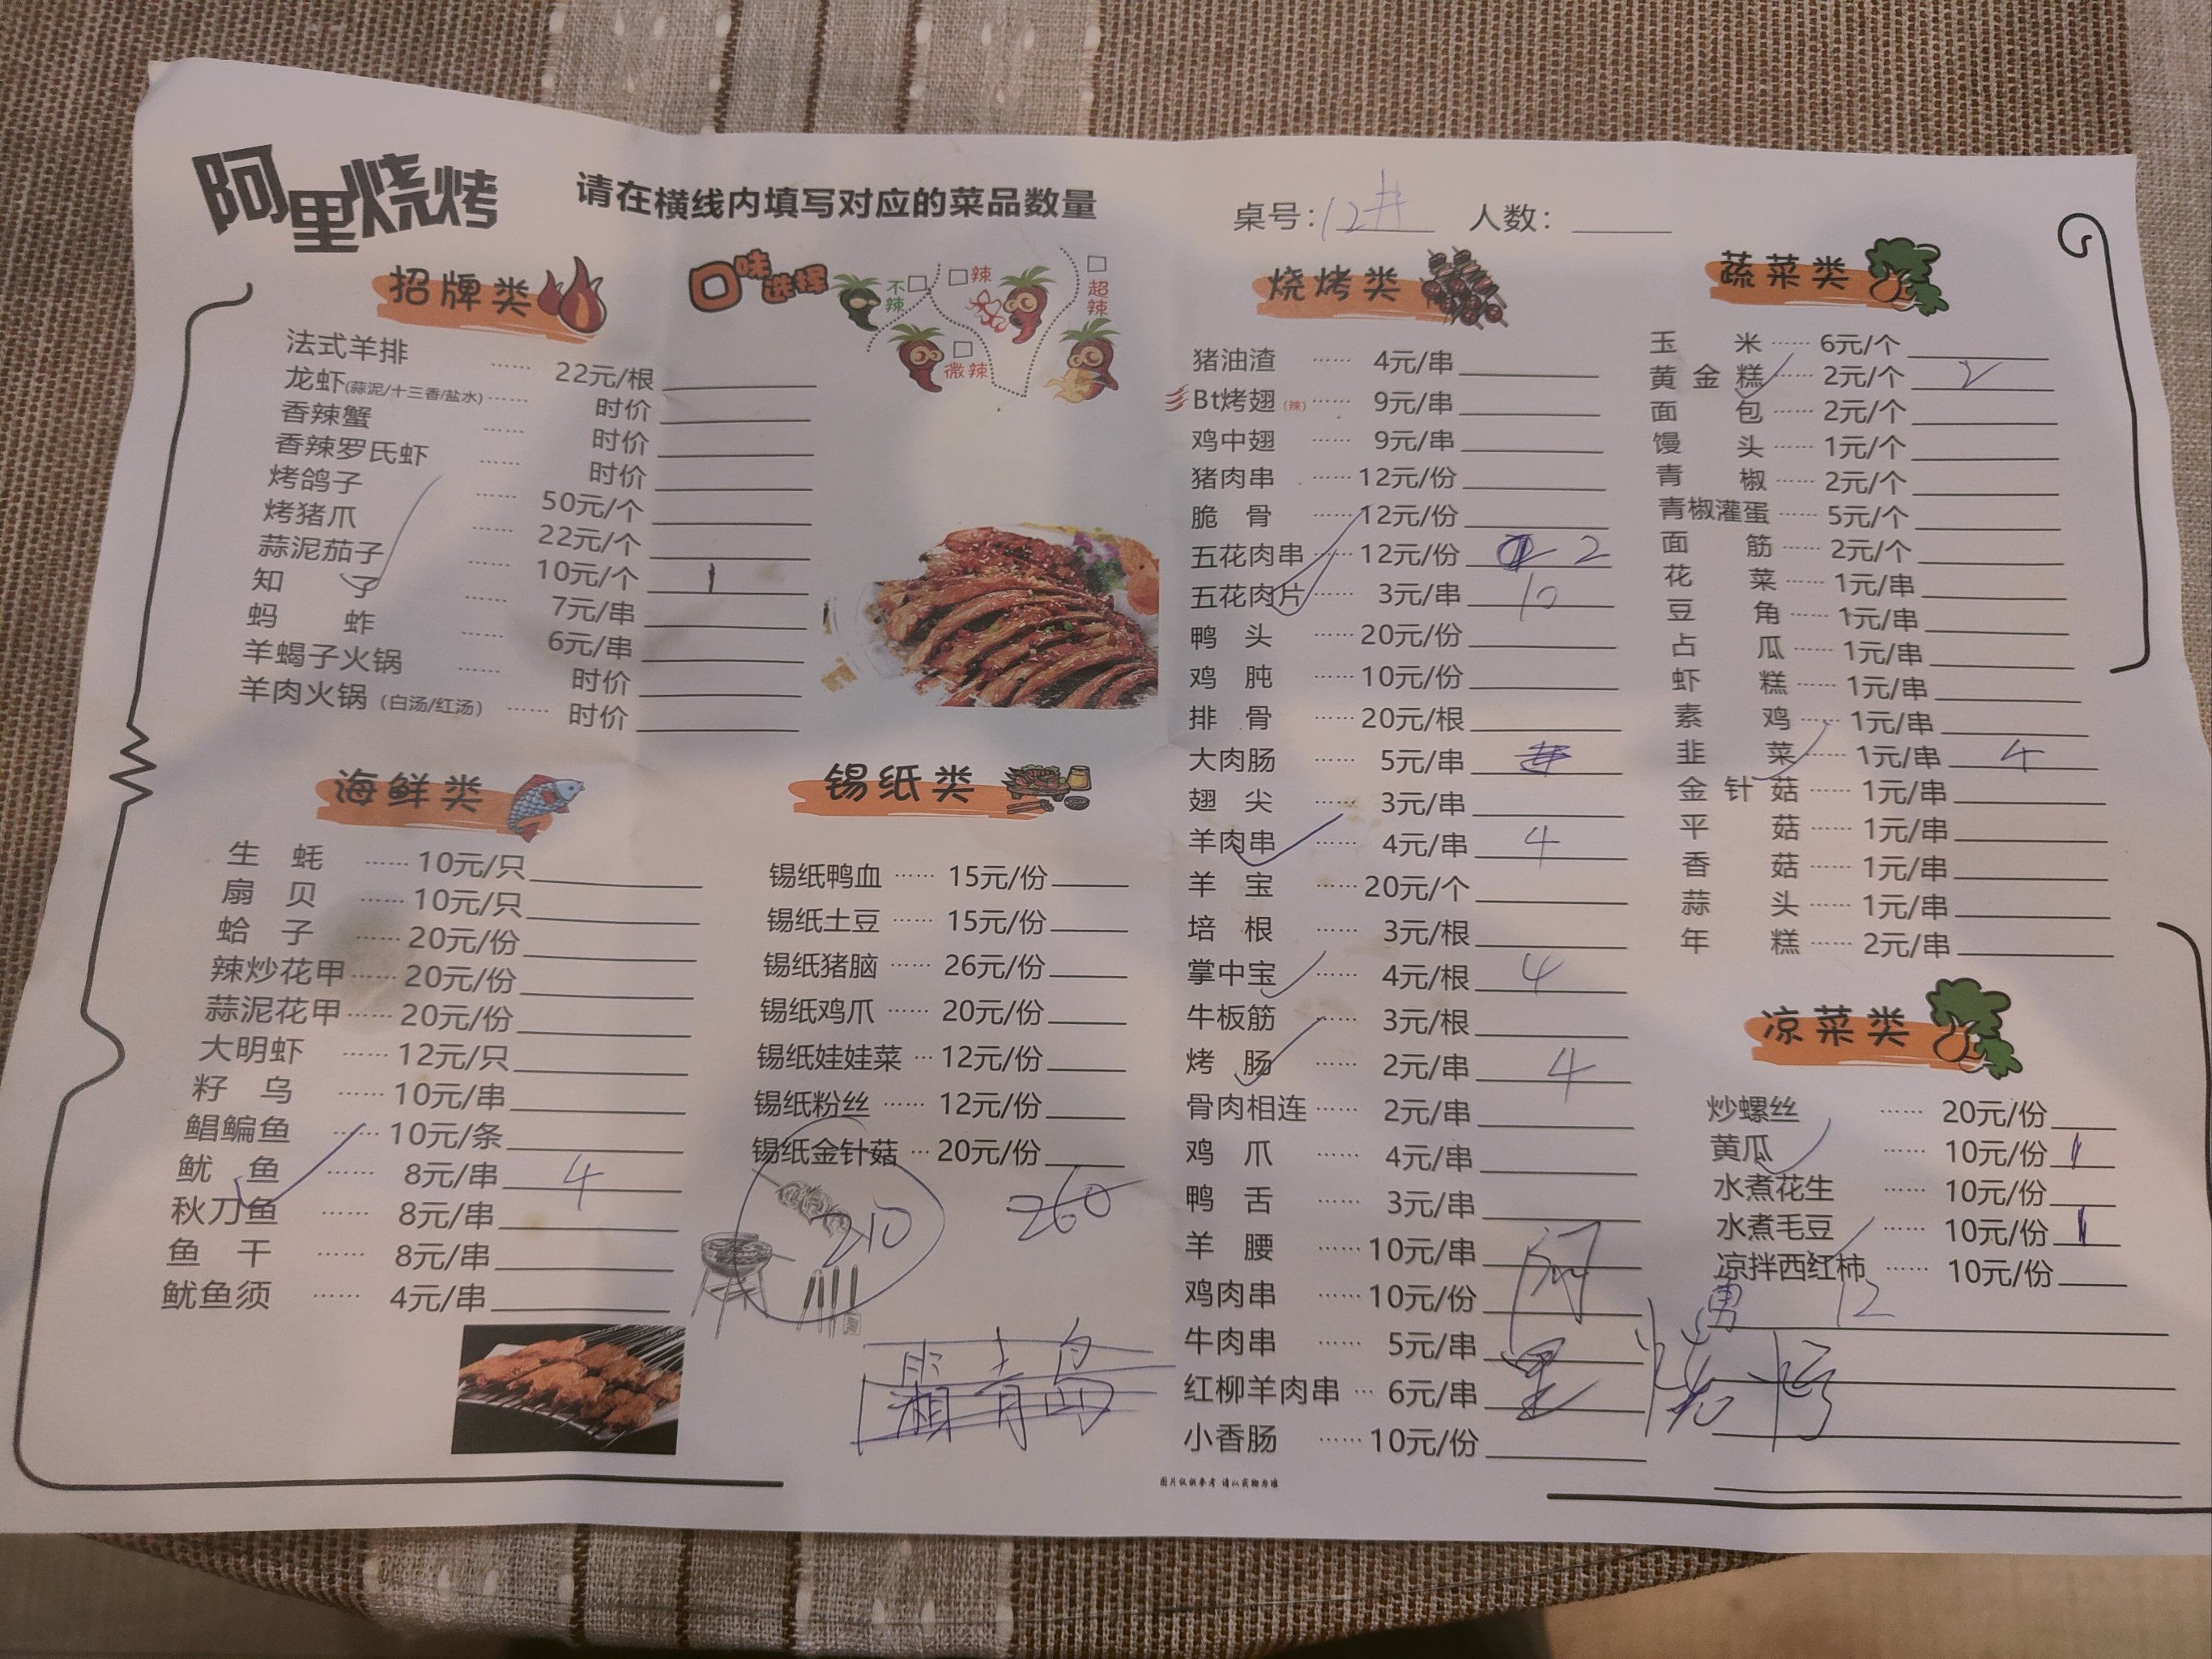 阿里烧烤
请在横线内填写对应的菜品数量
桌号: 12# 人数:
招牌类
法式羊排 …… 22元/根
龙虾(蒜泥/十三香/盐水) …… 时价
香辣蟹 …… 时价
香辣罗氏虾 …… 时价
烤鸽子 …… 50元/个
烤猪爪 …… 22元/个
蒜泥茄子 …… 10元/个 1
知 了 …… 7元/串
蚂 蚱 …… 6元/串
羊蝎子火锅 …… 时价
羊肉火锅 (白汤/红汤) …… 时价
口味选择
不辣
微辣
辣
超辣
海鲜类
生 蚝 …… 10元/只
扇 贝 …… 10元/只
蛤 子 …… 20元/份
辣炒花甲 …… 20元/份
蒜泥花甲 …… 20元/份
大明虾 …… 12元/只
籽 乌 …… 10元/串
鲳鳊鱼 …… 10元/条
鱿 鱼 …… 8元/串 4
秋刀鱼 …… 8元/串
鱼 干 …… 8元/串
鱿鱼须 …… 4元/串
锡纸类
锡纸鸭血 …… 15元/份
锡纸土豆 …… 15元/份
锡纸猪脑 …… 26元/份
锡纸鸡爪 …… 20元/份
锡纸娃娃菜 … 12元/份
锡纸粉丝 …… 12元/份
锡纸金针菇 … 20元/份
210
260
青岛
烧烤类
猪油渣 …… 4元/串
Bt烤翅(辣) …… 9元/串
鸡中翅 …… 9元/串
猪肉串 …… 12元/份
脆 骨 …… 12元/份
五花肉串 …… 12元/份 2
五花肉片 …… 3元/串 10
鸭 头 …… 20元/份
鸡 肫 …… 10元/份
排 骨 …… 20元/根
大肉肠 …… 5元/串
翅 尖 …… 3元/串
羊肉串 …… 4元/串 4
羊 宝 …… 20元/个
培 根 …… 3元/根
掌中宝 …… 4元/根 4
牛板筋 …… 3元/根
烤 肠 …… 2元/串 4
骨肉相连 …… 2元/串
鸡 爪 …… 4元/串
鸭 舌 …… 3元/串
羊 腰 …… 10元/串
鸡肉串 …… 10元/份
牛肉串 …… 5元/串
红柳羊肉串 … 6元/串
小香肠 …… 10元/份
蔬菜类
玉 米 …… 6元/个
黄 金 糕 …… 2元/个 2
面 包 …… 2元/个
馒 头 …… 1元/个
青 椒 …… 2元/个
青椒灌蛋 …… 5元/个
面 筋 …… 2元/个
花 菜 …… 1元/串
豆 角 …… 1元/串
占 瓜 …… 1元/串
虾 糕 …… 1元/串
素 鸡 …… 1元/串
韭 菜 …… 1元/串 4
金 针 菇 …… 1元/串
平 菇 …… 1元/串
香 菇 …… 1元/串
蒜 头 …… 1元/串
年 糕 …… 2元/串
凉菜类
炒螺丝 …… 20元/份
黄瓜 …… 10元/份 1
水煮花生 …… 10元/份
水煮毛豆 …… 10元/份 1
凉拌西红柿 …… 10元/份
勇 12
阿里烧烤
图片仅供参考 请以实物为准